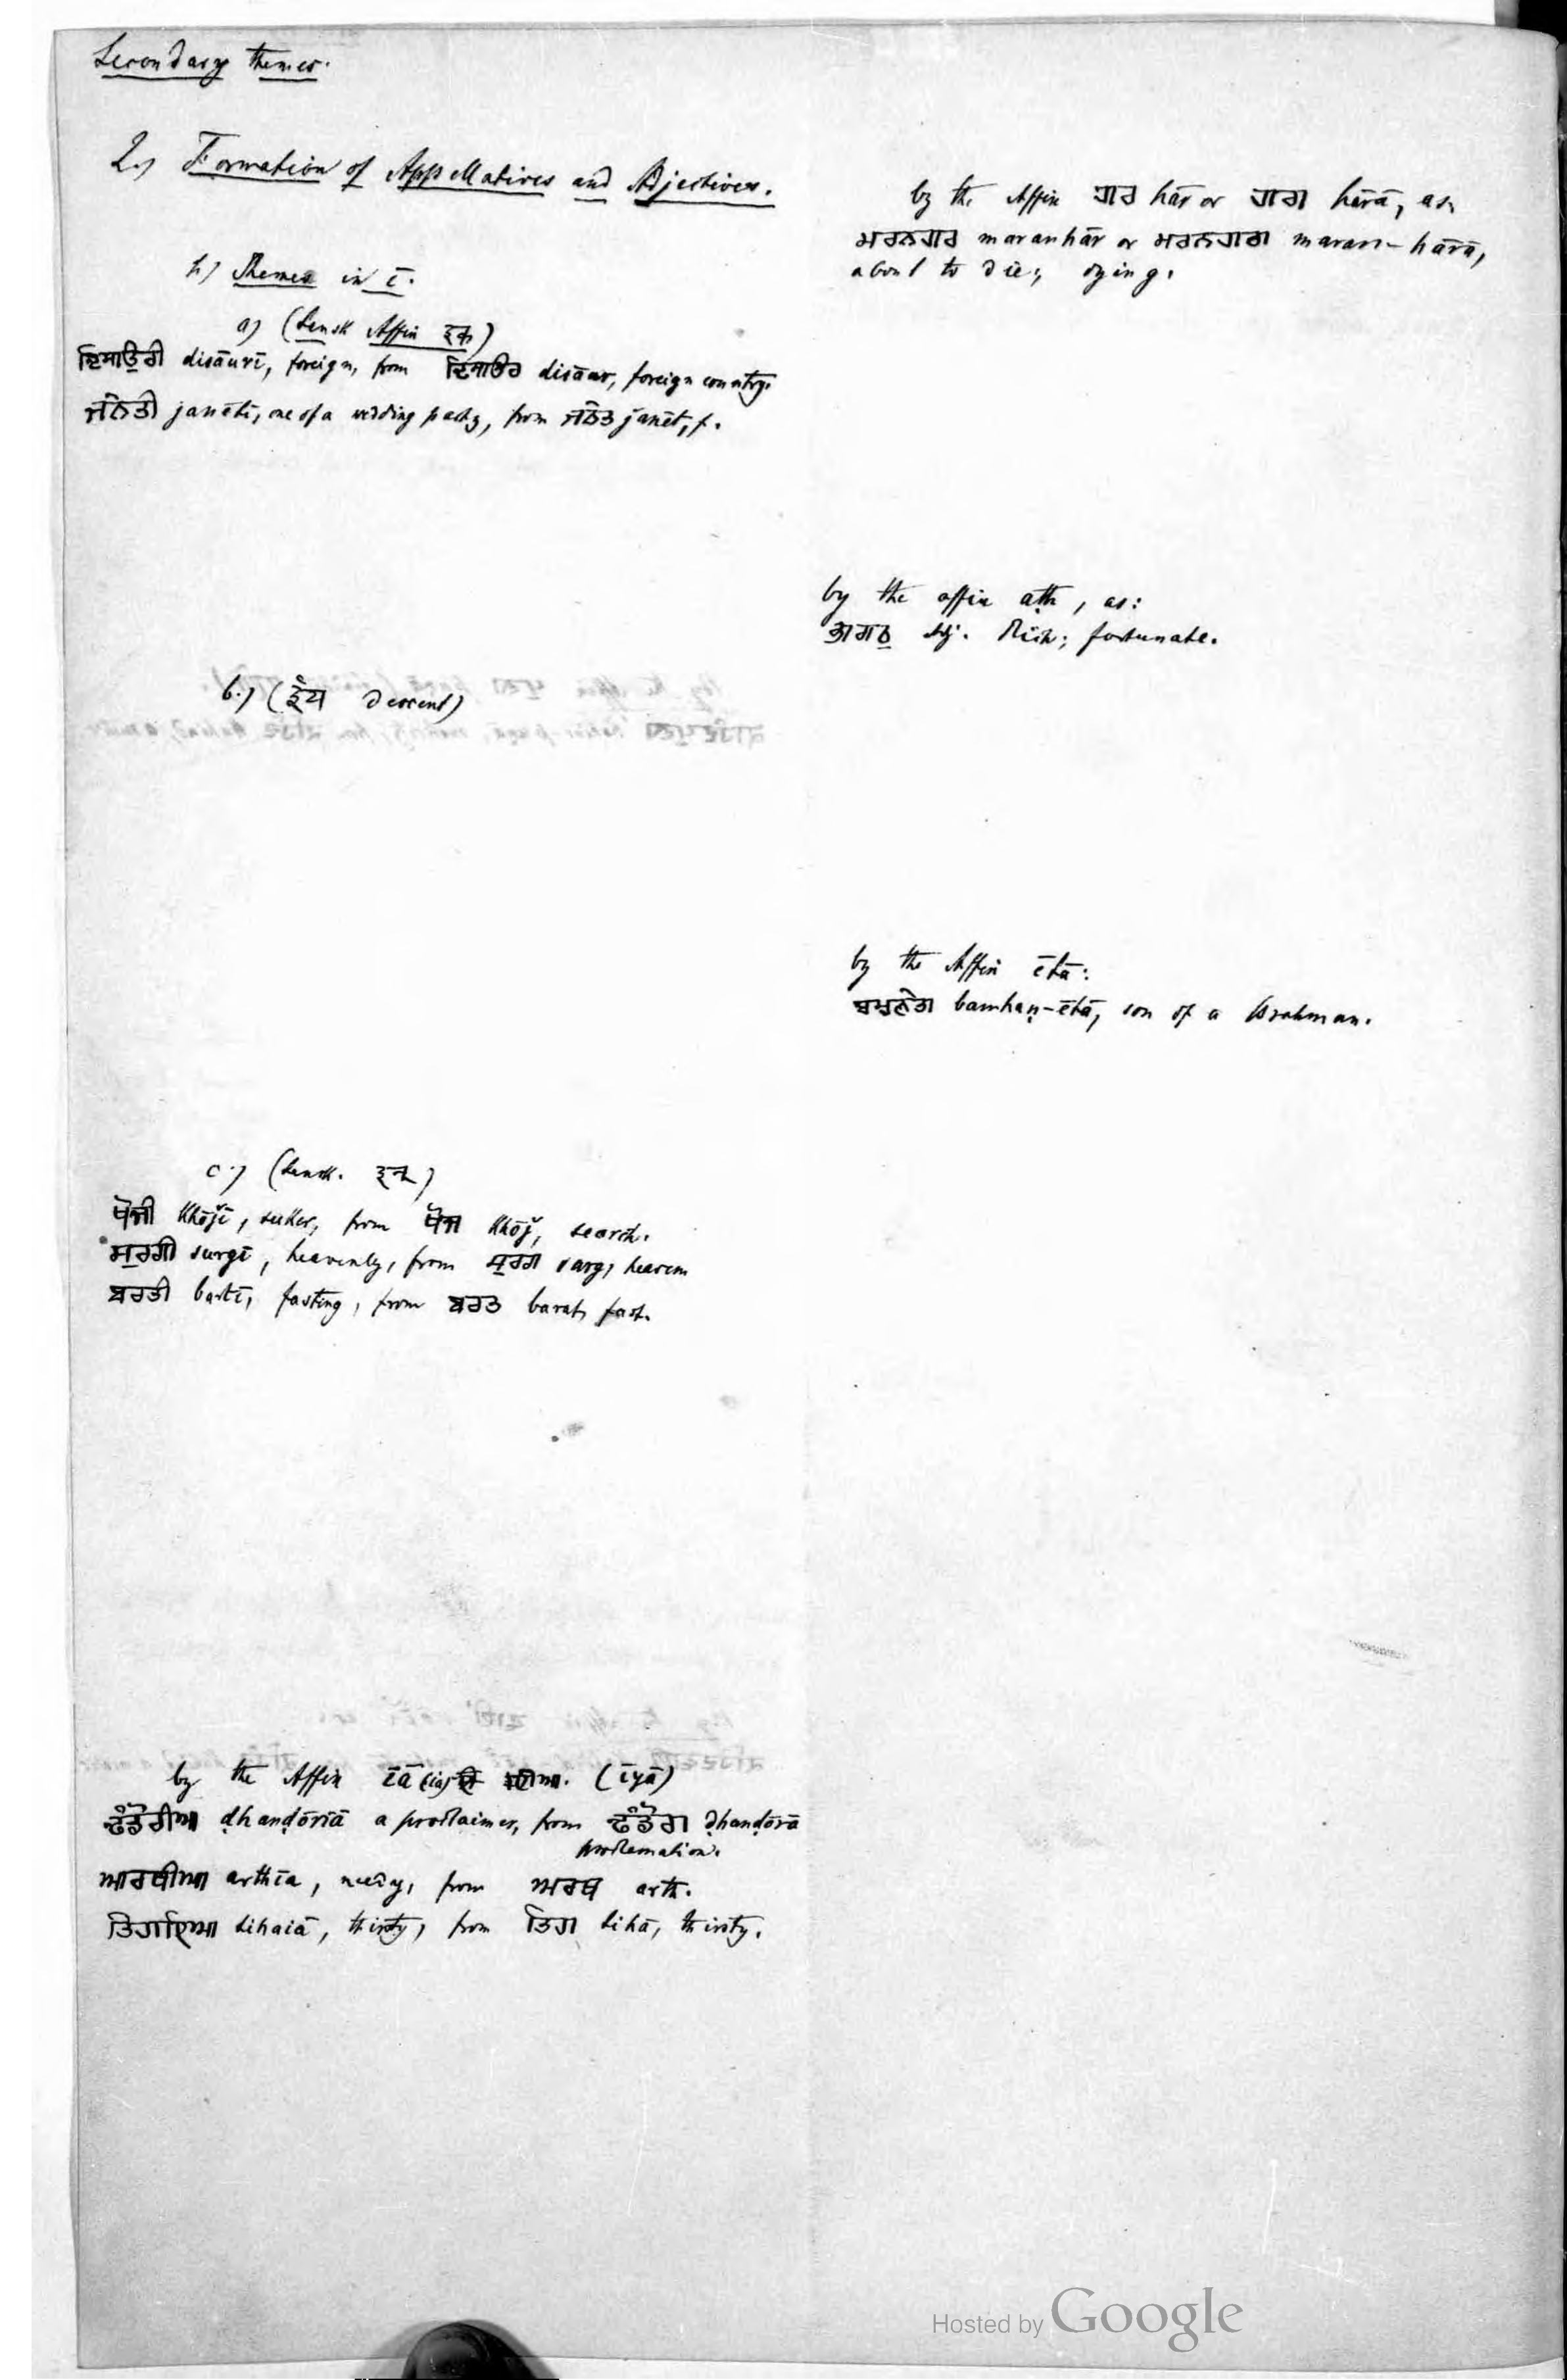 Secondary themes.
2.) Formation of Appellatives and Adjectives.
h) Themes in ī.
a) (Sansk Affix इक)
ਦਿਸਾਉਰੀ disāurī, foreign, from ਦਿਸਾਉਰ disāur, foreign country.
ਜਨੇਤੀ janētī, one of a wedding party, from ਜਨੇਤ janēt, f.
b.) (ईय descent)
c.) (Sansk. इन्)
ਖੋਜੀ khōjī, seeker, from ਖੋਜ khōj, search.
ਸੁਰਗੀ surgī, heavenly, from ਸੁਰਗ surg, heaven
ਬਰਤੀ bartī, fasting, from ਬਰਤ barat, fast.
by the Affix īā (iā) (īyā)
ਢੰਡੋਰੀਆ ḍhanḍōrīā a proclaimer, from ਢੰਡੋਰਾ ḍhanḍōrā
proclamation.
ਆਰਥੀਆ arthīa, needy, from ਅਰਥ arth.
ਤਿਹਾਇਆ tihaiā, thirsty, from ਤਿਹਾ tihā, thirsty.
by the Affix ਹਾਰ hār or ਹਾਰਾ hārā, as,
ਮਰਨਹਾਰ maranhār or ਮਰਨਹਾਰਾ maran-hārā,
about to die; dying.
by the affix aṭh, as:
ਭਾਗਠ adj. Rich; fortunate.
by the Affix ētā:
ਬਾਮ੍ਹਣੇਤਾ bamhaṇ-ētā, son of a Brahman.
Hosted by Google